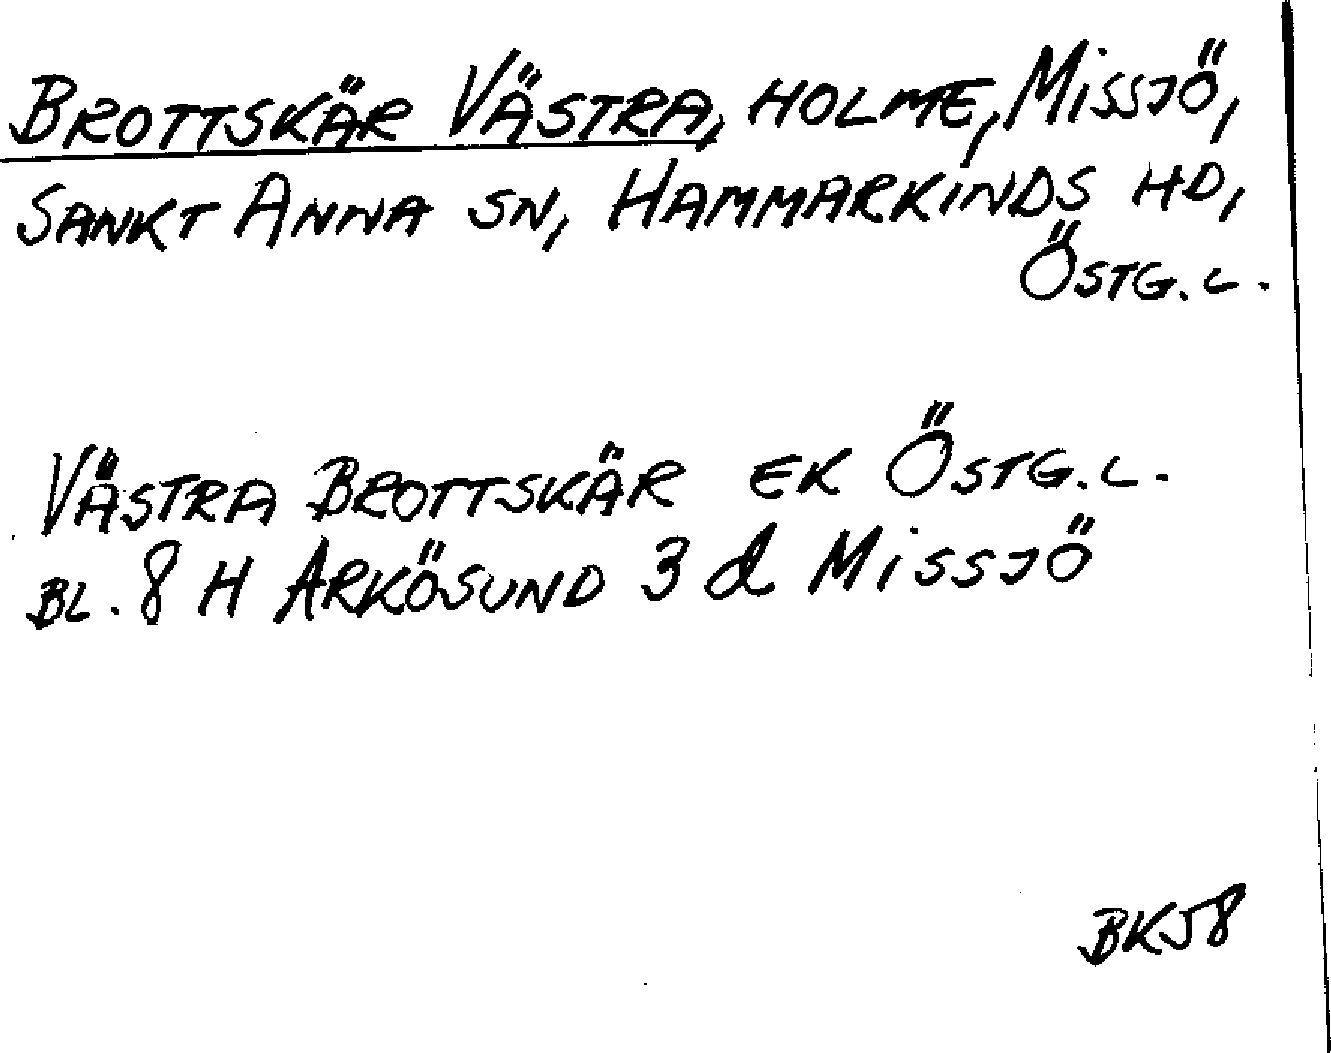 BROTTSKÄR VÄSTRA, HOLME, MISSJÖ,
SANKT ANNA SN, HAMMARKINDS HD,
ÖSTG. L.
VÄSTRA BROTTSKÄR EK ÖSTG. L.
BL. 8 H ARKÖSUND 3 d MISSJÖ
BKJ8